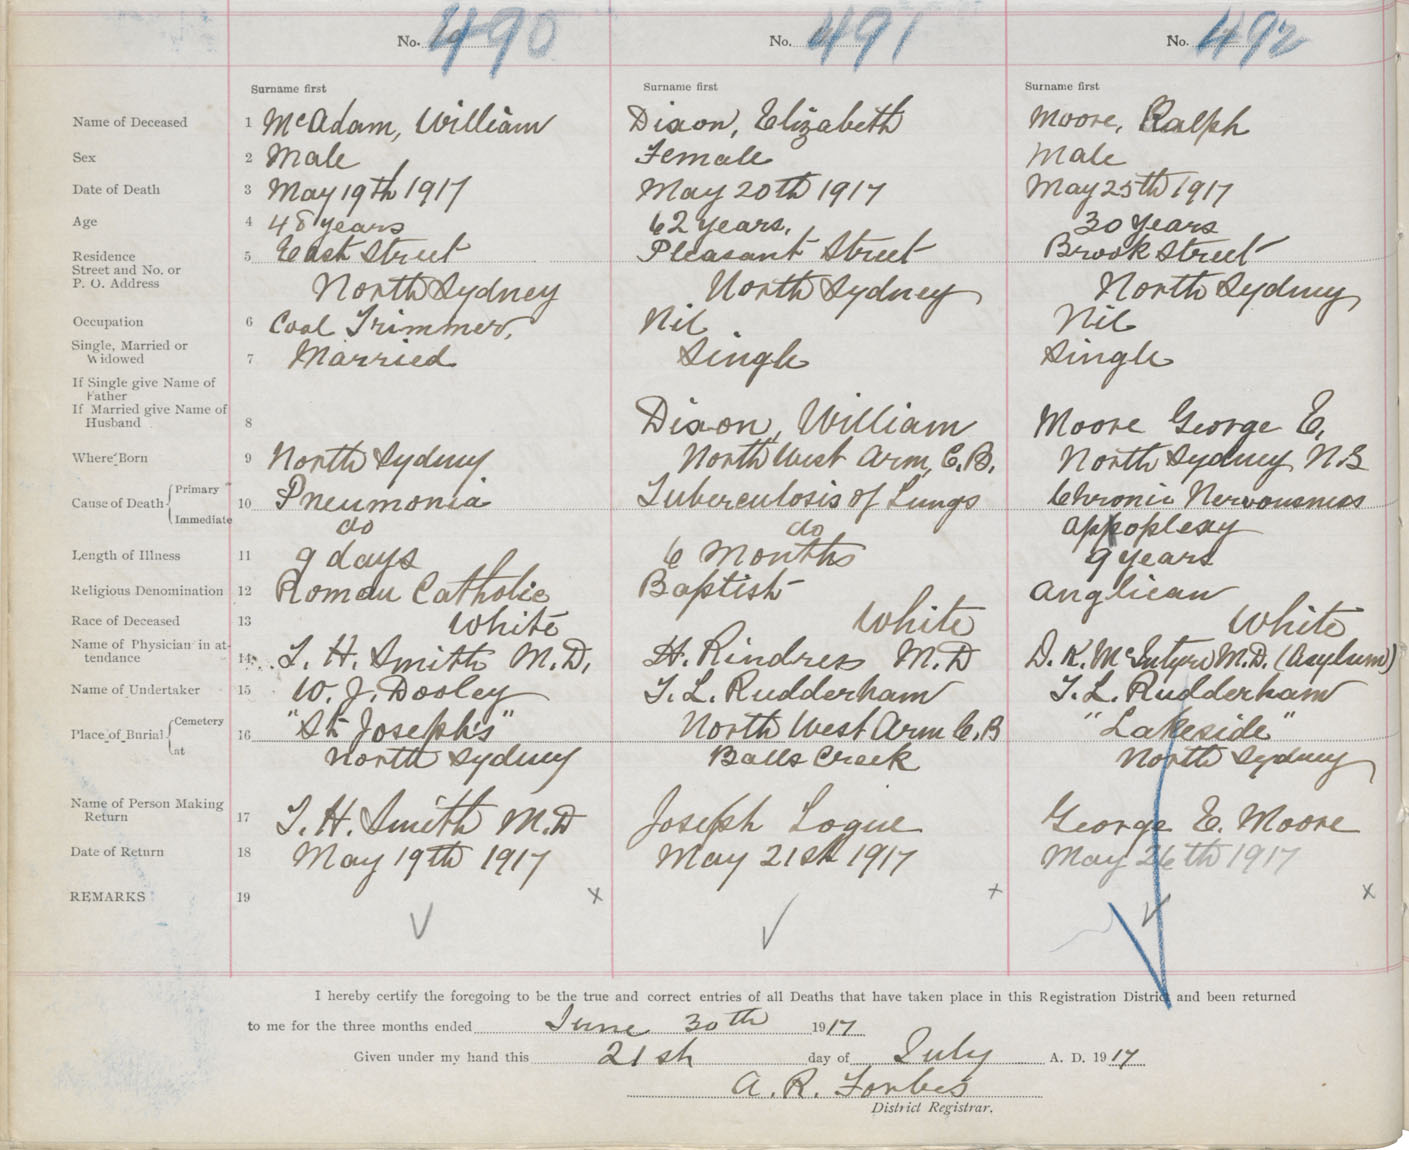 No. 490 No. 491 No. 492
Surname first Surname first Surname first
Name of Deceased 1 McAdam, William Dixon, Elizabeth Moore, Ralph
Sex 2 Male Female Male
Date of Death 3 May 19th 1917 May 20th 1917 May 25th 1917
Age 4 48 years 62 years, 30 years
Residence 5 East Street Pleasant Street Brook Street
Street and No. or
P. O. Address North Sydney North Sydney North Sydney
Occupation 6 Coal Trimmer, Nil Nil
Single, Married or
Widowed 7 Married Single Single
If Single give Name of
Father
If Married give Name of
Husband 8 Dixon, William Moore George E.
Where Born 9 North Sydney North West Arm, C.B. North Sydney N.S
Cause of Death Primary 10 Pneumonia Tuberculosis of Lungs Chronic Nervousness
Immediate do do appoplexy
Length of Illness 11 9 days 6 Months 9 years
Religious Denomination 12 Roman Catholic Baptist Anglican
Race of Deceased 13 White White White
Name of Physician in at-
tendance 14 T. H. Smith M.D. H. Rindress M.D D. K. McIntyre M.D. (Asylum)
Name of Undertaker 15 W. J. Dooley T. L. Rudderham T. L. Rudderham
Place of Burial Cemetery 16 "St Joseph's" North West Arm C.B "Lakeside"
at North Sydney Balls Creek North Sydney
Name of Person Making
Return 17 T. H. Smith M.D Joseph Logue George E. Moore
Date of Return 18 May 19th 1917 May 21st 1917 May 26th 1917
REMARKS 19
I hereby certify the foregoing to be the true and correct entries of all Deaths that have taken place in this Registration District and been returned
to me for the three months ended June 30th 1917
Given under my hand this 21st day of July A. D. 1917
A. R. Forbes
District Registrar.